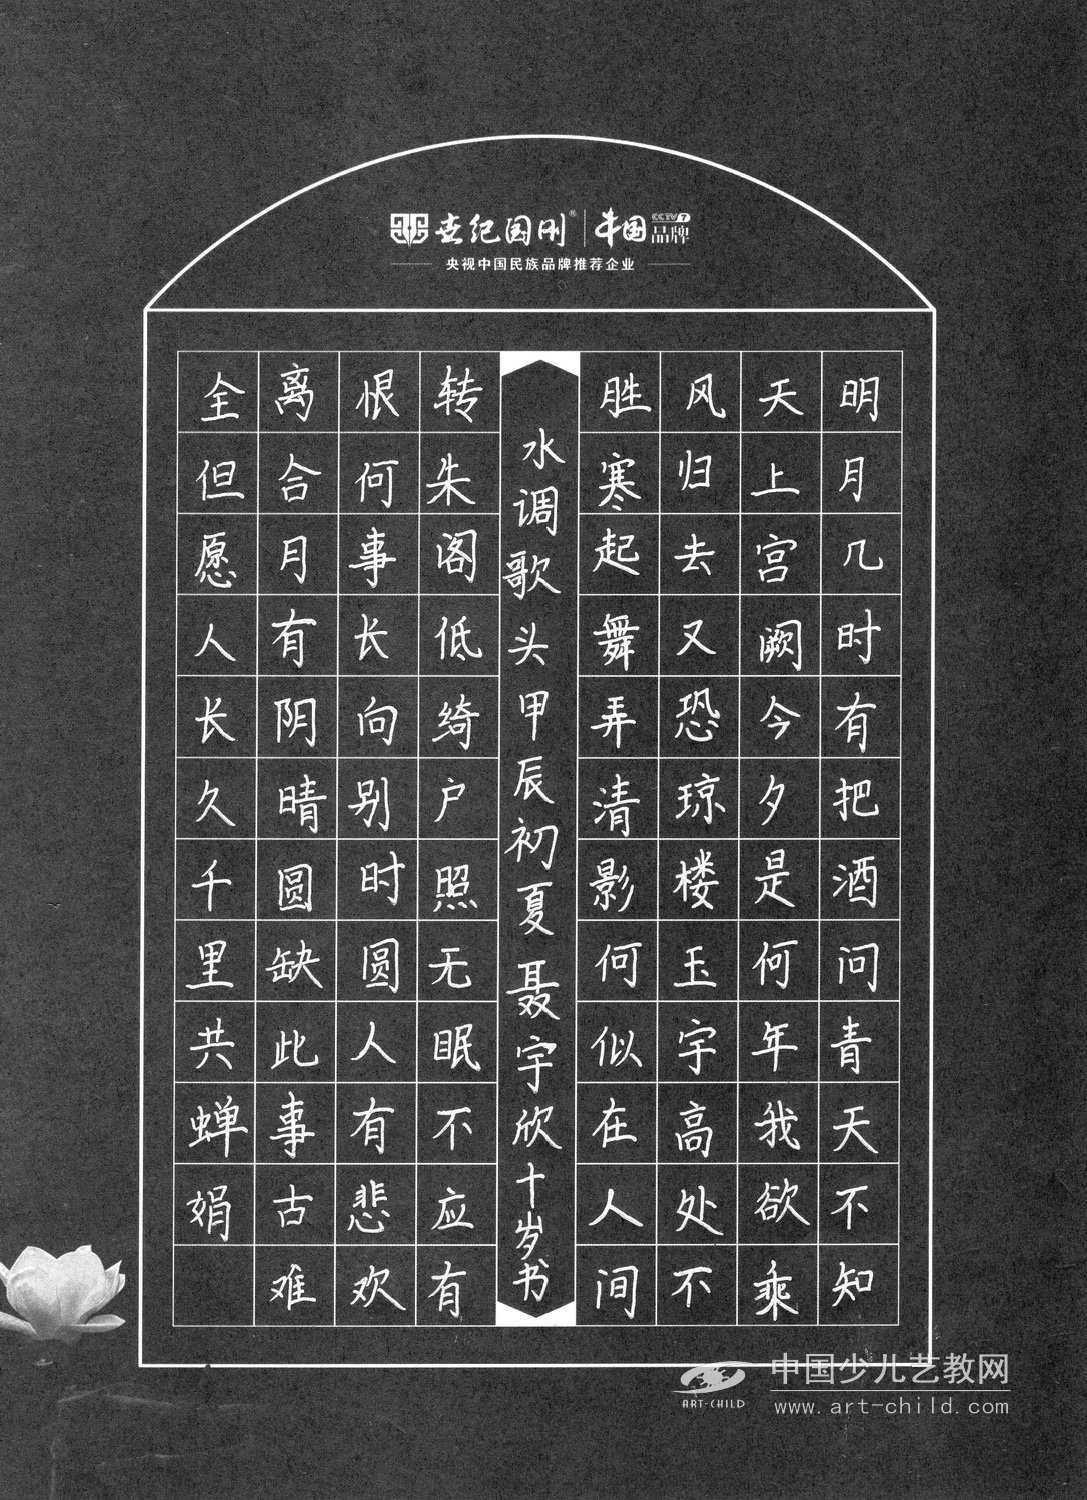 世纪国刚® 中国 CCTV7 品牌
央视中国民族品牌推荐企业
明月几时有把酒问青天不知
天上宫阙今夕是何年我欲乘
风归去又恐琼楼玉宇高处不
胜寒起舞弄清影何似在人间
水调歌头甲辰初夏聂宇欣十岁书
转朱阁低绮户照无眠不应有
恨何事长向别时圆人有悲欢
离合月有阴晴圆缺此事古难
全但愿人长久千里共蝉娟
ART-CHILD
中国少儿艺教网
www.art-child.com